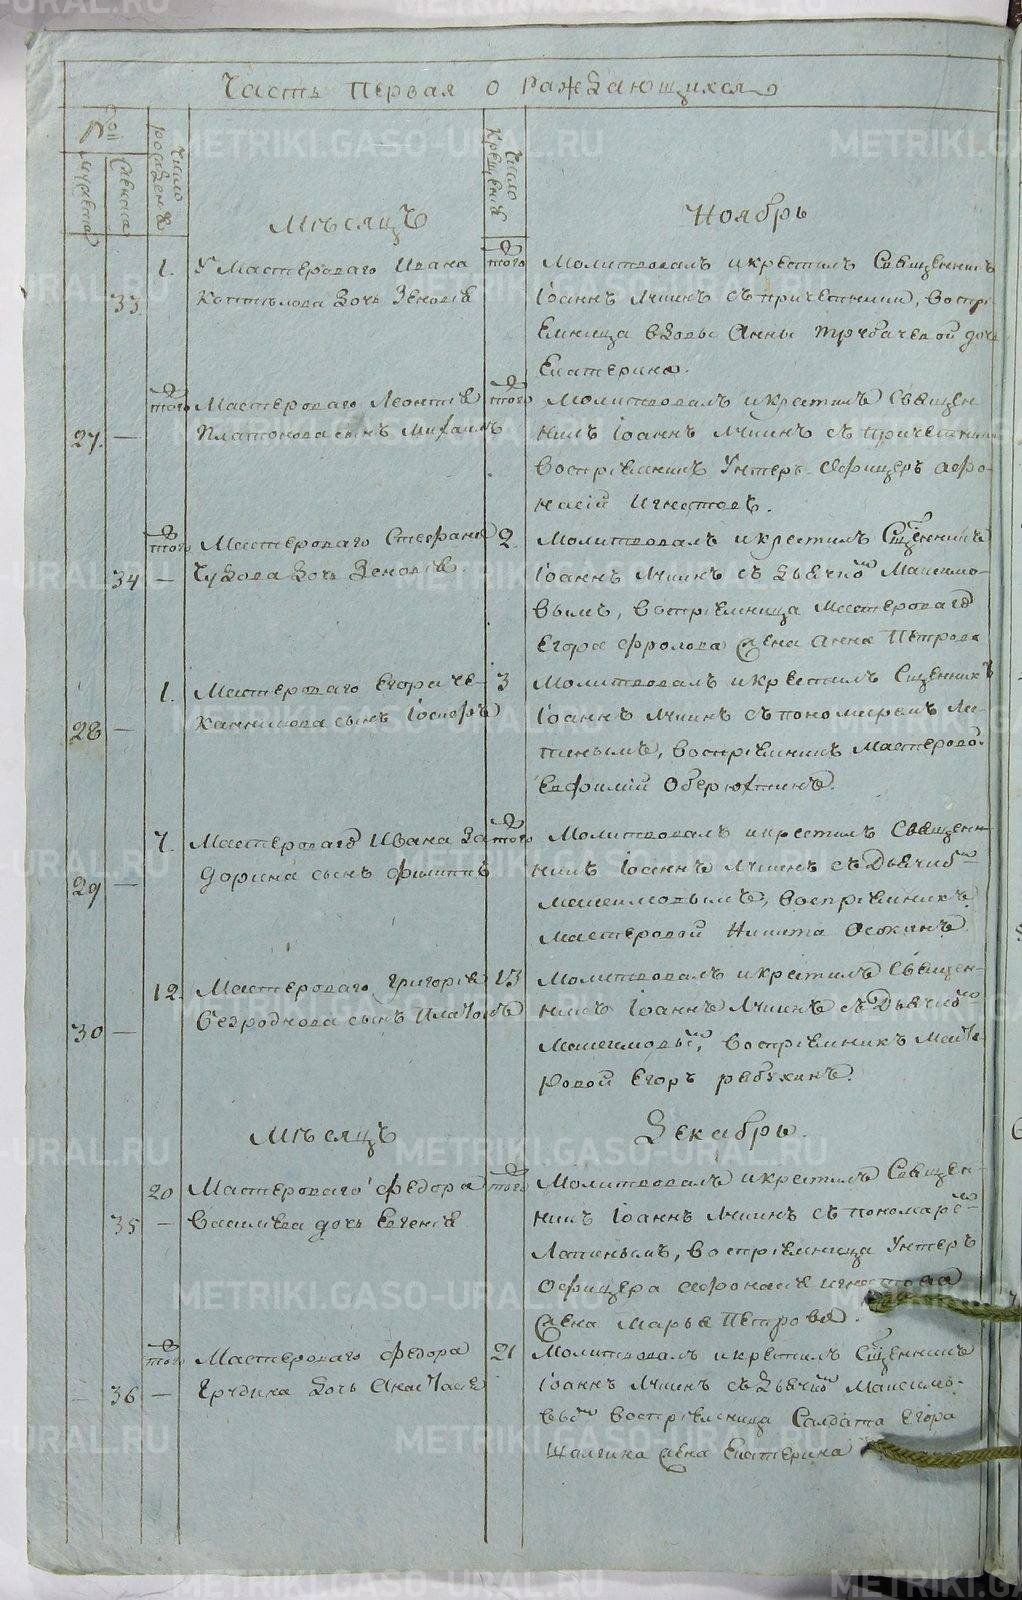 Часть первая о раждающихся
№
мужеска
женска
число рождения
число крещения
Мѣсяцъ
Ноябрь
33.
1.
У Мастероваго Ивана
Котѣлова дочь Зеновія
того
Молитвовалъ и крестилъ Священникъ
Іоаннъ Лчиинъ съ причетники, воспрі-
емница вдовы Анны Трубачевой дочь
Екатерина.
27. —
того
Мастероваго Леонтія
Платонова сынъ Михаилъ
того
Молитвовалъ и крестилъ Священ
никъ Іоаннъ съ причетники
воспріемникъ Унтеръ Офицеръ Афо-
насій Игнатовъ.
34 —
того
Мастероваго Стефана
Чудова дочь Зеновія.
2.
Молитвовалъ и крестилъ Сщенникъ
Іоаннъ съ дьячко Максимо-
вымъ, воспріемница Мастероваго
Егора Фролова жена Анна Петрова
28 —
1.
Мастероваго Егора Че-
канникова сынъ Іосифъ
3
Молитвовалъ и крестилъ Сщенникъ
Іоаннъ съ пономаремъ Ла-
пинымъ, воспріемникъ Мастеровой
Евфимій Оберюхтинъ.
29 —
7.
Мастероваго Ивана За
дорина сынъ Филиппъ
того
Молитвовалъ и крестилъ Священ-
никъ Іоаннъ съ Дьячко
Максимовымъ, воспріемникъ
Мастеровой Никита
30 —
12.
Мастероваго Григорія
Безроднова сынъ
13
Молитвовалъ и крестилъ Священ-
никъ Іоаннъ съ Дьячко
воспріемникъ Масте
ровой Егоръ Рябухинъ.
Мѣсяцъ
Декабрь.
35 —
20
Мастероваго Федора
Василіева дочь Евгенія
того
Молитвовалъ и крестилъ Священ-
никъ Іоаннъ съ пономаре
Лапинымъ, воспріемница Унтеръ
Офицера Афонасія Игнатова
жена Марья Петрова.
36 —
того
Мастероваго Федора
дочь Анастасія
21
Молитвовалъ и крестилъ Сщенникъ
Іоаннъ съ дьячко Максимо-
вы воспріемница Салдата Егора
жена Екатерина
METRIKI.GASO-URAL.RU